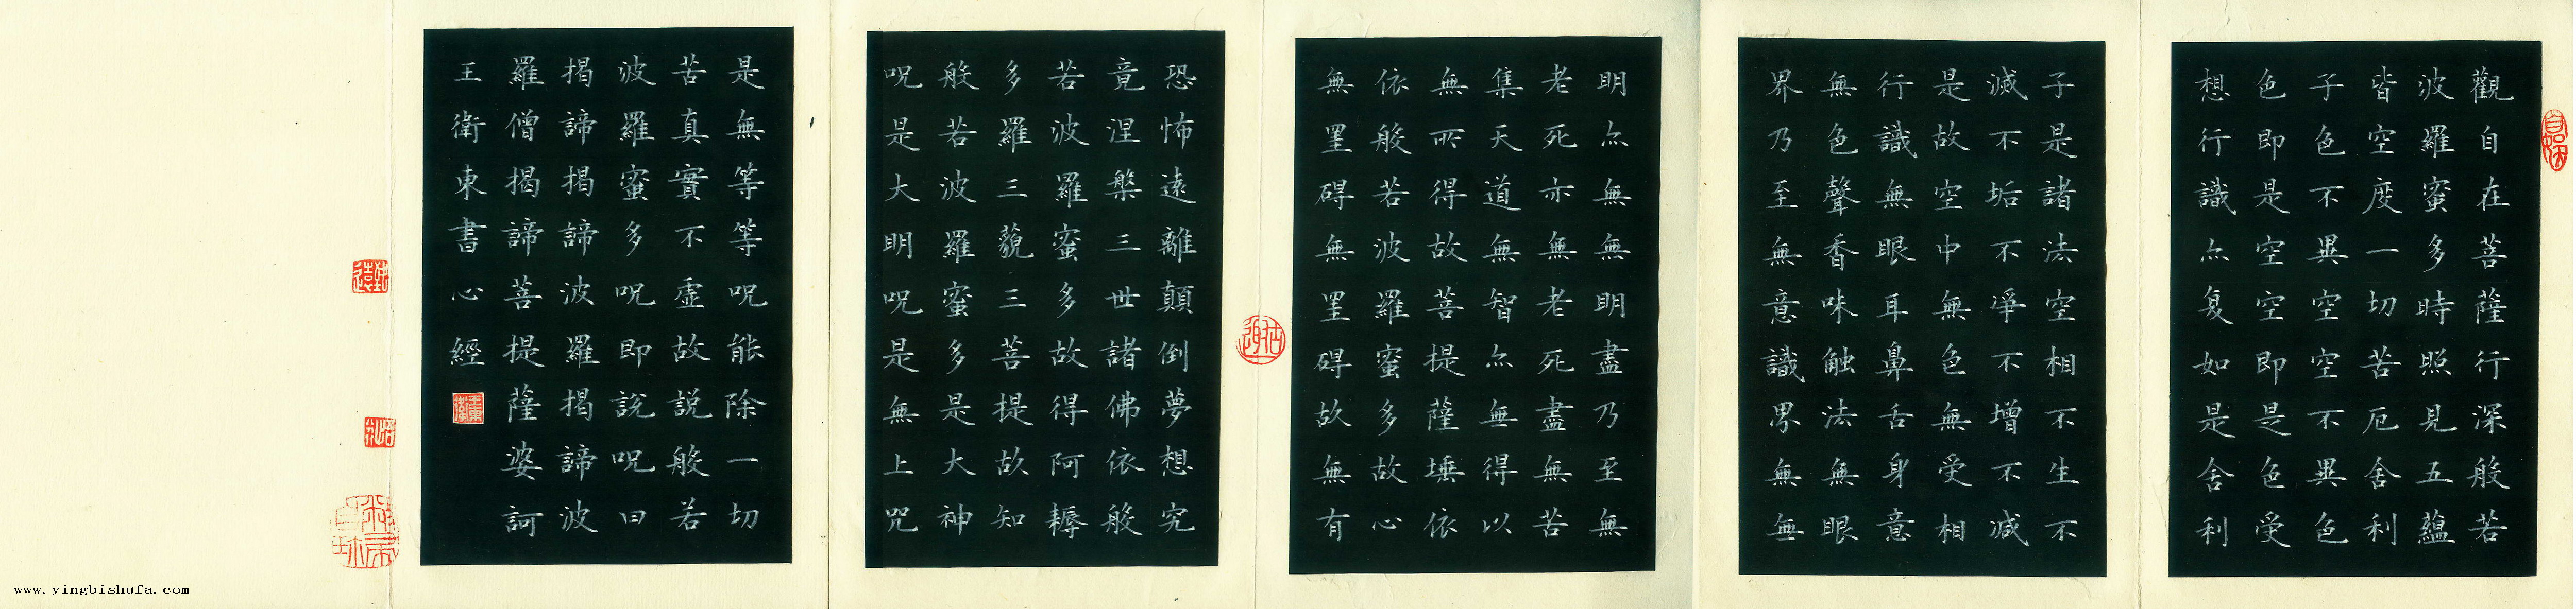 觀自在菩薩行深般若
波羅蜜多時照見五蘊
皆空度一切苦厄舍利
子色不異空空不異色
色即是空空即是色受
想行識亦复如是舍利
子是諸法空相不生不
滅不垢不淨不增不減
是故空中無色無受相
行識無眼耳鼻舌身意
無色聲香味触法無眼
界乃至無意識界無無
明亦無無明盡乃至無
老死亦無老死盡無苦
集天道無智亦無得以
無所得故菩提薩埵依
依般若波羅蜜多故心
無罣碍無罣碍故無有
恐怖遠離顛倒夢想究
竟涅槃三世諸佛依般
若波羅蜜多故得阿耨
多羅三藐三菩提故知
般若波羅蜜多是大神
呪是大明呪是無上咒
是無等等呪能除一切
苦真實不虛故説般若
波羅蜜多呪即說呪曰
揭諦揭諦波羅揭諦波
羅僧揭諦菩提薩婆訶
王衛東書心經
www.yingbishufa.com